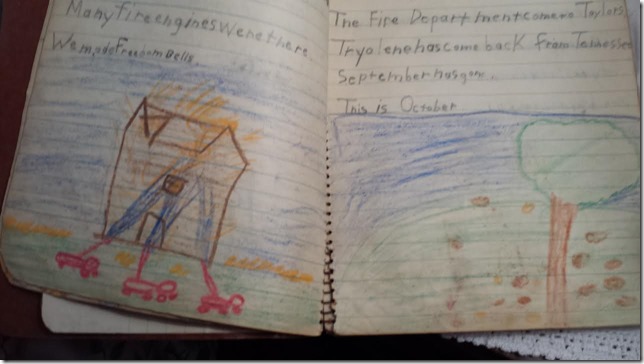 Many fire engines Were there
We made Freedom Bells.
The Fire Department come to Taylors
Tryolene has come back from Tennessee
September has gon.
This is October